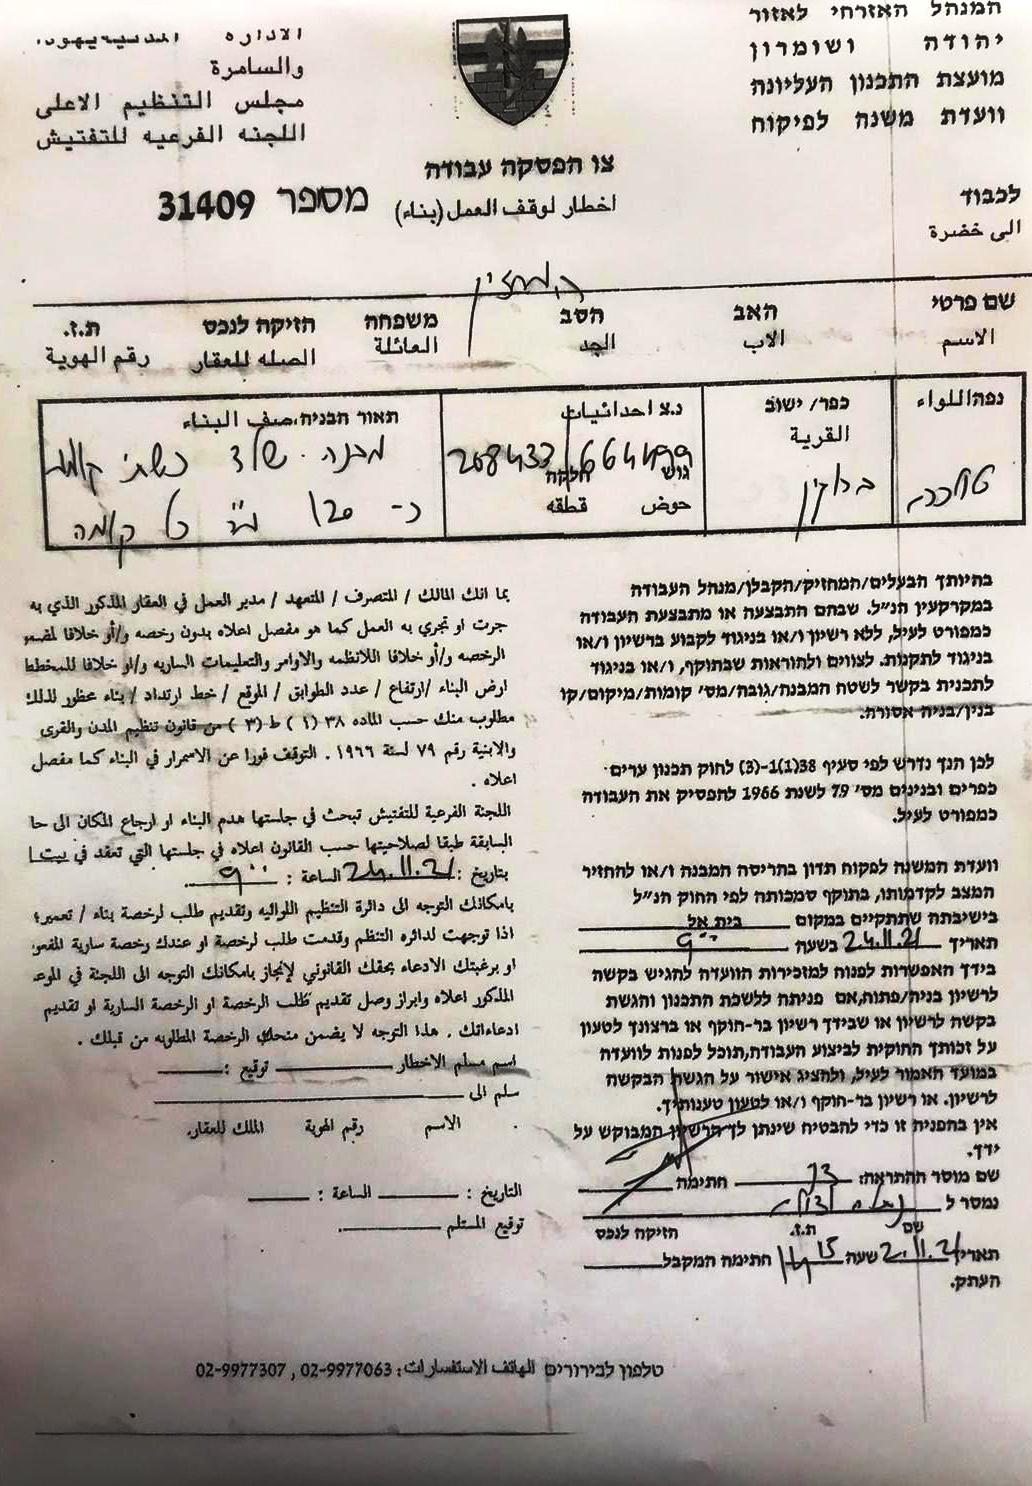 המנהל האזרחי לאזור
יהודה ושומרון
מועצת התכנון העליונה
וועדת משנה לפיקוח
الادارة المدنية يهودا
والسامرة
مجلس التنظيم الاعلى
اللجنه الفرعيه للتفتيش
צו הפסקה עבודה
اخطار لوقف العمل (بناء)
מספר 31409
לכבוד
الى حضرة
המחזיק
שם פרטי האב הסב משפחה חזיקה לנכס ת.ז.
الاسم الاب الجد العائلة الصله للعقار رقم الهوية
נפה اللواء
טולכרם
כפר/ ישוב
القرية
ברוקין
נ.צ احداثيات
208433/664499
גוש חלקה
حوض قطقه
תאור הבניה، صف البناء
מבנה שלד כשתי קומות
כ- 120 מ"ר כל קומה
בהיותך הבעלים/המחזיק/הקבלן/מנהל העבודה
במקרקעין הנ"ל. שבהם התבצעה או מתבצעת העבודה
כמפורט לעיל, ללא רשיון ו/או בניגוד לקבוע ברשיון ו/או
בניגוד לתקנות. לצווים ולהוראות שבתוקף, ו/או בניגוד
לתכנית בקשר לשטח המבנה/גובה/מס' קומות/מיקום/קו
בנין/בניה אסורה.
לכן הנך נדרש לפי סעיף 38(1)-(3) לחוק תכנון ערים
כפרים ובנינים מס' 79 לשנת 1966 להפסיק את העבודה
כמפורט לעיל.
וועדת המשנה לפקוח תדון בהריסה המבנה ו/או להחזיר
המצב לקדמותו, בתוקף סמכותה לפי החוק הנ"ל
בישיבתה שתתקיים במקום בית אל
תאריך 24.11.21 בשעה 9:00
בידך האפשרות לפנות למזכירות הוועדה להגיש בקשה
לרשיון בניה/פתוח,אם פניתה ללשכת התכנון והגשת
בקשה לרשיון או שבידך רשיון בר-תוקף או ברצונך לטעון
על זכותך החוקית לביצוע העבודה,תוכל לפנות לוועדה
במועד האמור לעיל, ולהציג אישור על הגשת הבקשה
לרשיון. או רשיון בר-תוקף ו/או לטעון טענותיך.
אין בהפניה זו כדי להבטיח שינתן לך הרשיון המבוקש על
ידך.
שם מוסר ההתראה: חתימה
נמסר ל
שם ת.ז. חזיקה לנכס
תאריך 2.11.21 שעה 14:15 חתימה המקבל
העתק.
بما انك المالك / المتصرف / المتعهد / مدير العمل في العقار المذكور الذي به
جرت او تجري به العمل كما هو مفصل اعلاه بدون رخصه و/أو خلافا لمضمو
الرخصه و/أو خلافا اللانظمه والاوامر والتعليمات الساريه و/او خلافا للمخطط
ارض البناء /ارتفاع / عدد الطوابق / الموقع / خط ارتداد / بناء عظور لذلك
مطلوب منك حسب الماده ٣٨ (١) ط (٣) من قانون تنظيم المدن والقرى
والابنية رقم ٧٩ لسنة ١٩٦٦ . التوقف فورا عن الاسمرار في البناء كما مفصل
اعلاه .
اللجنة الفرعية للتفتيش تبحث في جلستها هدم البناء او ارجاع المكان الى حا
السابقة طبقا لصلاحيتها حسب القانون اعلاه في جلستها التي تعقد في بيت ا
بتاريخ : 24.11.21 الساعة : 9:00
بامكانك التوجه الى دائرة التنظيم اللوائيه وتقديم طلب لرخصة بناء / تعمير؛
اذا توجهت لدائره التنظم وقدمت طلب لرخصة او عندك رخصة سارية المفعو
او برغبتك الادعاء بحقك القانوني لإنجاز بامكانك التوجه الى اللجنة في الموعد
المذكور اعلاه وابراز وصل تقديم طلب الرخصة او الرخصة السارية او تقديم
ادعاءاتك . هذا التوجه لا يضمن منحك الرخصة المطلوبه من قبلك .
اسم مسلم الاخطار توقيع :
سلم الى
الاسم رقم الهوية الملك للعقار.
التاريخ : الساعة :
توقيع المستلم
טלפון לבירורים الهاتف الاستفسارات: 02-9977063 , 02-9977307